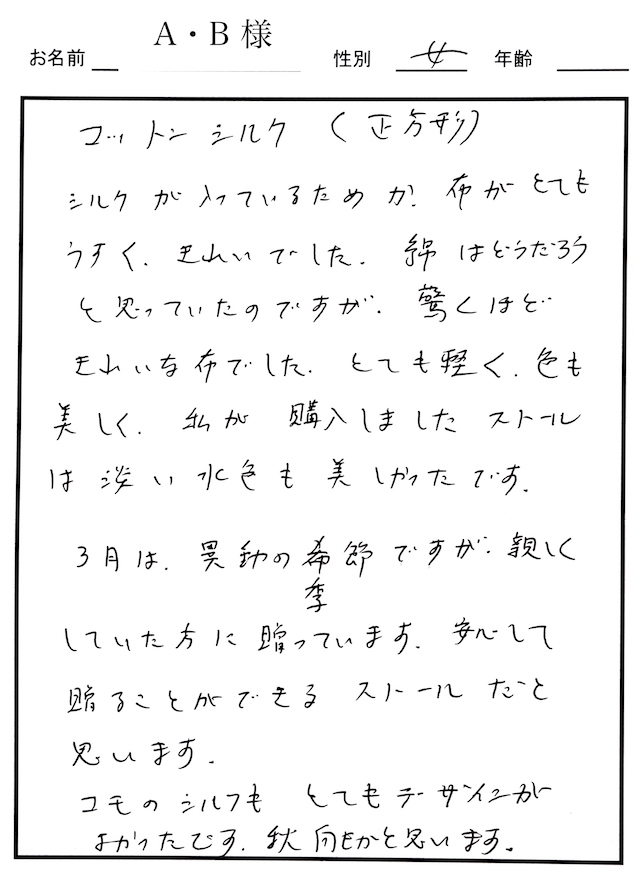 お名前 A・B様 性別 女 年齢
コットンシルク (正方形)
シルクが入っているためか、布がとても
うすく、きれいでした。綿はどうだろう
と思っていたのですが、驚くほど
きれいな布でした。とても軽く、色も
美しく、私が購入しましたストール
は淡い水色も美しかったです。
3月は、異動の希節ですが、親しく
季
していた方に贈っています。安心して
贈ることができるストールだと
思います。
コモのシルクもとてもデザインが
よかったです。秋向きかと思います。